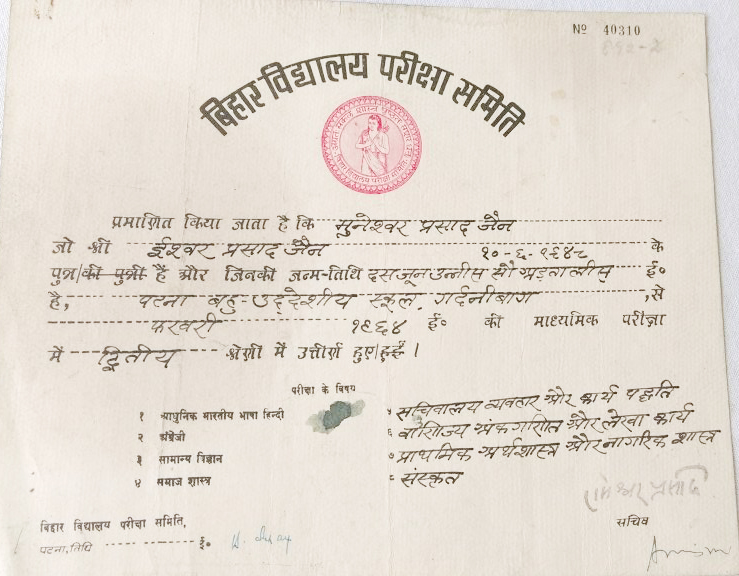 Nº 40310
बिहार विद्यालय परीक्षा समिति
प्रमाणित किया जाता है कि मुनेश्वर प्रसाद जैन
जो श्री ईश्वर प्रसाद जैन १०-६-१९४८ के
पुत्र/की पुत्री हैं और जिनकी जन्म-तिथि दस जून उन्नीस सौ अड़तालीस ई०
है, पटना बहु-उद्देशीय स्कूल, गर्दनीबाग ,से
फरवरी १९६४ ई० की माध्यमिक परीक्षा
में द्वितीय श्रेणी में उत्तीर्ण हुए/हुई ।
परीक्षा के विषय
१ आधुनिक भारतीय भाषा हिन्दी
२ अंग्रेजी
३ सामान्य विज्ञान
४ समाज शास्त्र
५ सचिवालय व्यवहार और कार्य पद्धति
६ वाणिज्य अंकगणित और लेखा कार्य
७ प्राथमिक अर्थशास्त्र और नागरिक शास्त्र
८ संस्कृत
बिहार विद्यालय परीक्षा समिति,
पटना, तिथि ई०
सचिव